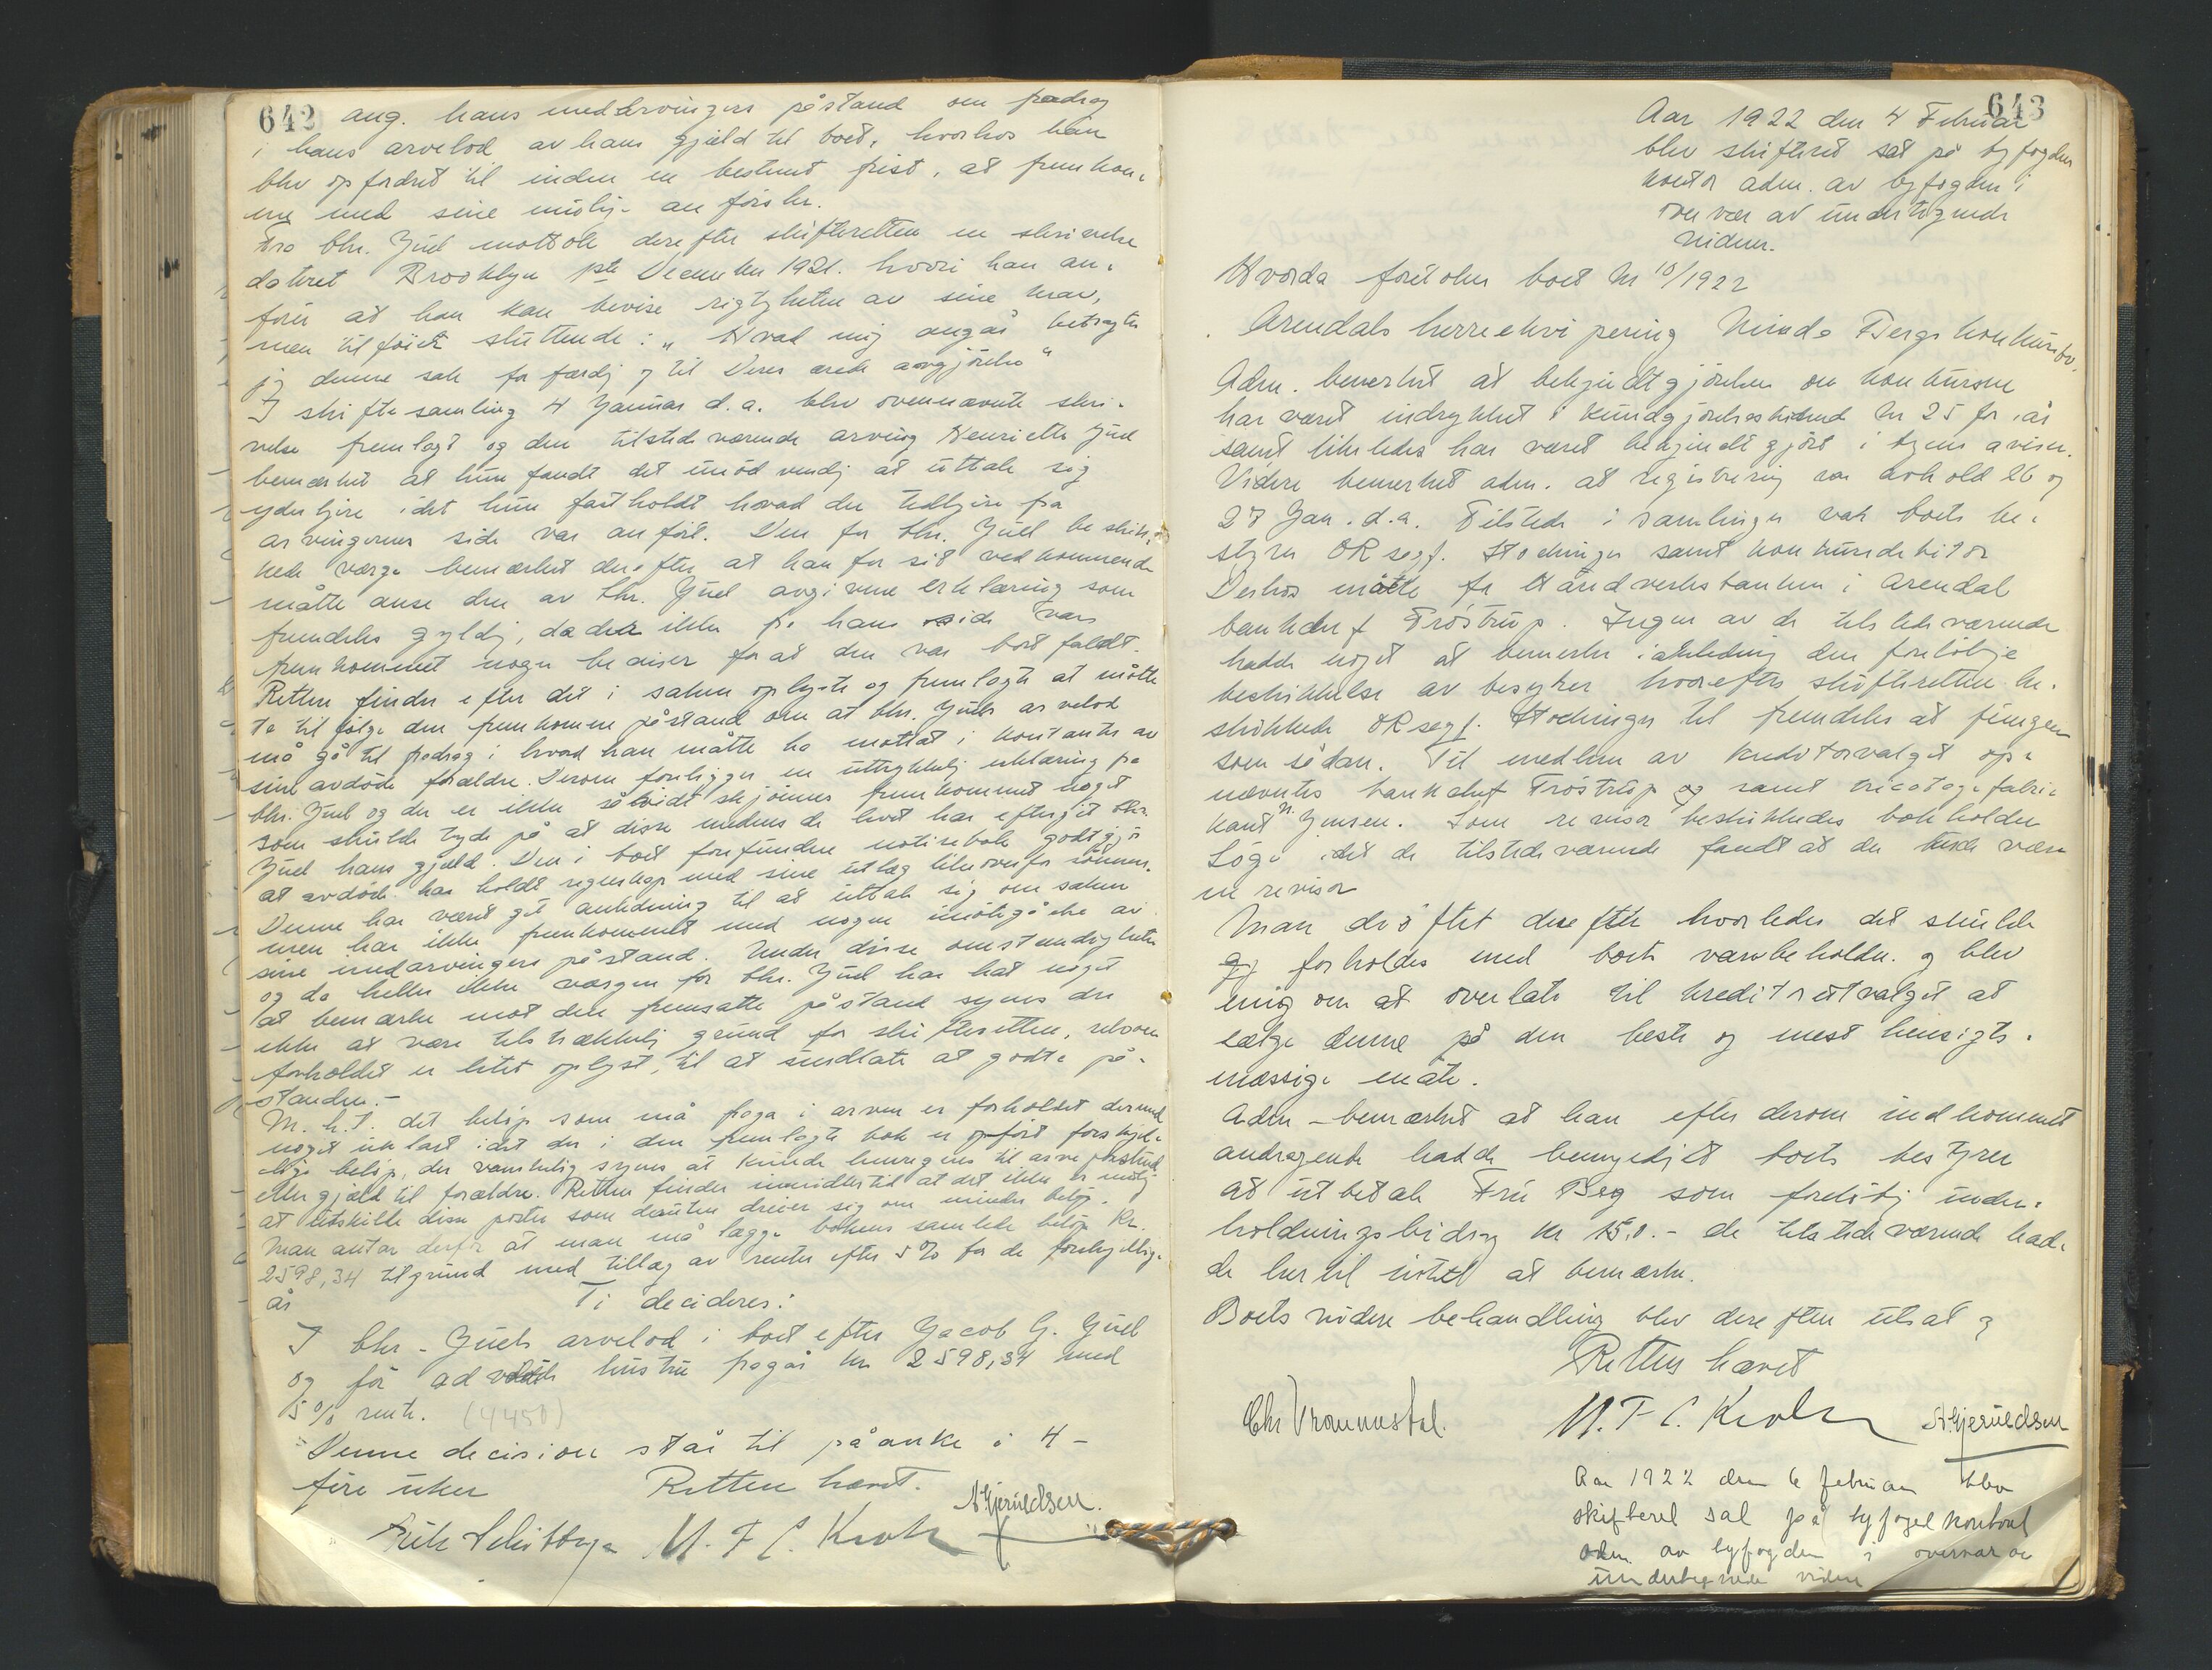 642
ang. hans medarvingers påstand om fradrag
i hans arvelod av hans gjæld til boet, hvorhos han
blev opfordret til inden en bestemt frist, at fremkom-
me med sine mulig- anførsler.
Fra Chr. Juel mottok derefter skifteretten en skrivelse
dateret Brooklyn 1ste December 1921. hvori han an-
fører at han kan bevise rigtigheten av sine krav,
men tilføiet sluttende: „Hvad mig angår betragter
jeg denne sak for færdig og til Deres ærede avgjørelse"
I skiftesamling 4 Januar d.a. blev ovennævnte skri-
velse fremlagt og den tilstedeværende arving Henriette Juel
bemerket at hun fandt det unødvendig at uttale sig
yderligere idet hun fastholdt hvad der tidligere fra
arvingernes side var anført. Den for Chr. Juel beskik-
kede værge bemærket derefter at han for sit vedkommende
måtte anse den av Chr. Juel avgivne erklæring som
fremdeles gyldig, da der ikke fra hans side var
fremkommet nogen beviser for at den var bortfaldt.
Retten finder efter det i saken oplyste og fremlagte at måtte
ta til følge den fremkomne påstand om at Chr. Juels arvelod
må gå til fradrag i hvad han måtte ha mottat i kontanter av
sine avdøde forældre. Derom foreligger en uttrykkelig erklæring fra
Chr. Juel og der er ikke såvidt skjønnes fremkommet noget
som skulde tyde på at disse medens de levet har eftergit Chr.
Juel hans gjæld. Den i boet forefundne notisebok godtgjør
at avdøde har holdt regnskap med sine utlæg likeoverfor sønnen.
Denne har været git anledning til at uttale sig om saken
men har ikke fremkommet med nogen imøtegåelse av
sine medarvingers påstand. Under disse omstændigheter
og da heller ikke værgen for Chr. Juel har hat noget
at bemærke mot den fremsatte påstand synes der
ikke at være tilstrækkelig grund for skifteretten, selvom
forholdet er litet oplyst, til at undlate at godta på-
standen.-
M.h.t. det beløp som må fraga i arven er forholdet dermed
noget uklart idet der i den fremlagte bok er opført forskjel-
lige beløp, der vanskelig synes at kunde henregnes til arveforskud
eller gjæld til forældre. Retten finder imidlertid at det ikke er mulig
at utskille disse poster som desuten dreier sig om mindre beløp.
Man antar derfor at man må lægge bokens samlede beløp Kr.
2598,34 til grund med tillæg av renter efter 5% for de forskjellige
år
Ti decideres:
I Chr. Juels arvelod i boet efter Jacob G. Juel
og før avdøde hustru fragår kr 2598,34 med
5% rente. (4450)
Denne decision står til påanke i 4-
fire uker
Retten hævet.
M. F. C. Krohn
A Hjeruldsen.
643
Aar 1922 den 4 Februar
blev skifteret sat på byfogdens
kontor adm. av byfogden i
overvær av undertegnede
vidner.
Hvorda foretokes boet Nr 10/1922
Arendals herreekvipering Minda Bergs konkursbo.
Adm. bemerket at bekjendtgjørelsen om konkursen
har været indrykket i kundgjørelsestidende Nr 25 for iår
samt likeledes har været bekjendtgjort i byens aviser.
Videre bemerket adm. at registrering var avholdt 26 og
27 Jan. d.a. Tilstede i samlingen var boets be-
styrer ORsagf. Stochinger samt konkursdebitor
Desuten møtte for Håndverksbanken i Arendal
bankchef Frøstrup. Ingen av de tilstedeværende
hadde noget at bemerke i anledning den foreløbige
beskikkelse av bestyrer hvorefter skifteretten be-
skikkede ORsagf. Stochinger til fremdeles at fungere
som sådan. Til medlem av kreditorvalget op-
nævntes bankchef Frøstrup og samt tricotagefabri-
kant N. Jensen. Som revisor beskikkedes bokholder
Løge idet de tilstedeværende fandt at der burde være
en revisor
Man drøftet derefter hvorledes det skulde
forholdes med boets varebeholdn. og blev
enig om at overlate til kreditorutvalget at
sælge denne på den beste og mest hensigts-
mæssige måte.
Adm- bemærket at han efter derom indkommet
andragende hadde bemyndiget boets bestyrer
at utbetale Fru Berg som foreløbig under-
holdningsbidrag kr 150.- de tilstedeværende had-
de hertil intet at bemærke.
Boets videre behandling blev derefter utsat og
Retten hævet
Chr Vrommestal.
M. F. C. Krohn
A Hjeruldsen
Aar 1922 den 6 februar blev
skifteret sat på byfoged kontoret
adm. av byfogden i overvær av
undertegnede vidner